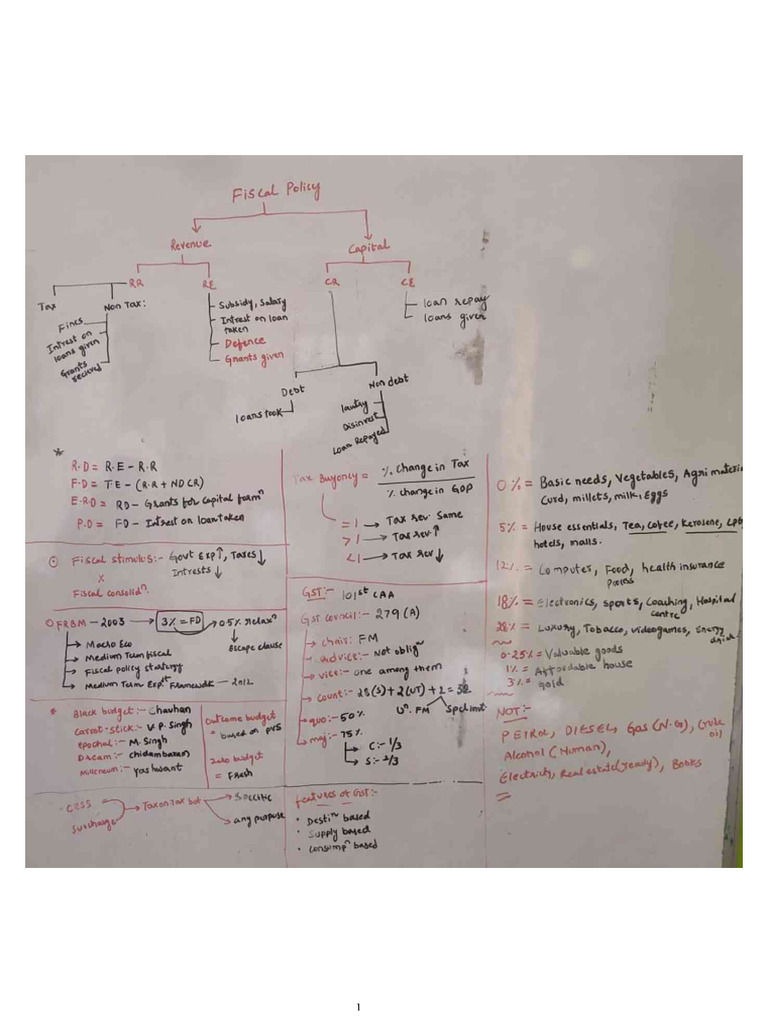 Fiscal Policy
Revenue
Capital
RR
RE
CR
CE
Tax
Non Tax:
Fines
Intrest on
loans given
Grants
recieved
Subsidy, salary
Intrest on loan
taken
Defence
Grants given
loan repay
loans given
Debt
loans took
Non debt
Disinvest
Loan Repayed
*
R.D = R.E - R.R
F.D = T.E - (R.R + ND CR)
E.R.D = RD - Grants for capital formⁿ
P.D = FD - Intrest on loan taken
Fiscal stimulus:- Govt Exp↑, Taxes↓
Intrests ↓
x
Fiscal consolidⁿ.
FRBM - 2003 → 3% = FD → 0.5% relaxⁿ
Escape clause
→ Macro Eco
→ Medium Term fiscal
→ Fiscal policy stategy
→ Medium Term Expᵗ Framewdk - 2012
* Black budget:- Chavhan
Carrot-stick:- V.P. Singh
epochal:- M. Singh
Dream:- chidambaran
Milleneum:- Yashwant
Outcome budget
= based on pvs
Zero budget
= Fresh
cess
surcharge
→ Tax on tax but
→ Specific
→ any purpose
Tax Buyoncy = % Change in Tax
% change in GDP
=1 → Tax rev. Same
>1 → Tax rev.↑
<1 → Tax rev↓
GST:- 101st CAA
GST council:- 279(A)
→ chair: FM
→ advice:- Not obligⁿ
→ vice:- one among them
→ count:- 28(S)+2(UT)+2=32
Uⁿ. FM
→ quo:- 50%
→ maj:- 75%
→ C:- 1/3
→ S:- 2/3
features of GST:-
• Destiⁿ based
• Supply based
• Consimpⁿ based
0% = Basic needs, Vegetables, Agri material
Curd, millets, milk, Eggs
5% = House essentials, Tea, cofee, Kerosene, LPG
hotels, malls.
12% = Computes, Food, health insurance
18% = Electronics, sports, Coaching, Hospital
centre
28% = Luxury, Tobacco, videogames, Energy
drink
0.25% = Valuable goods
1% = Affordable house
3% = gold
NOT:-
PETROL, DIESEL, Gas (N.G), Crude
oil
Alcohol (Human),
Electricity, Real estate (ready), Books
1